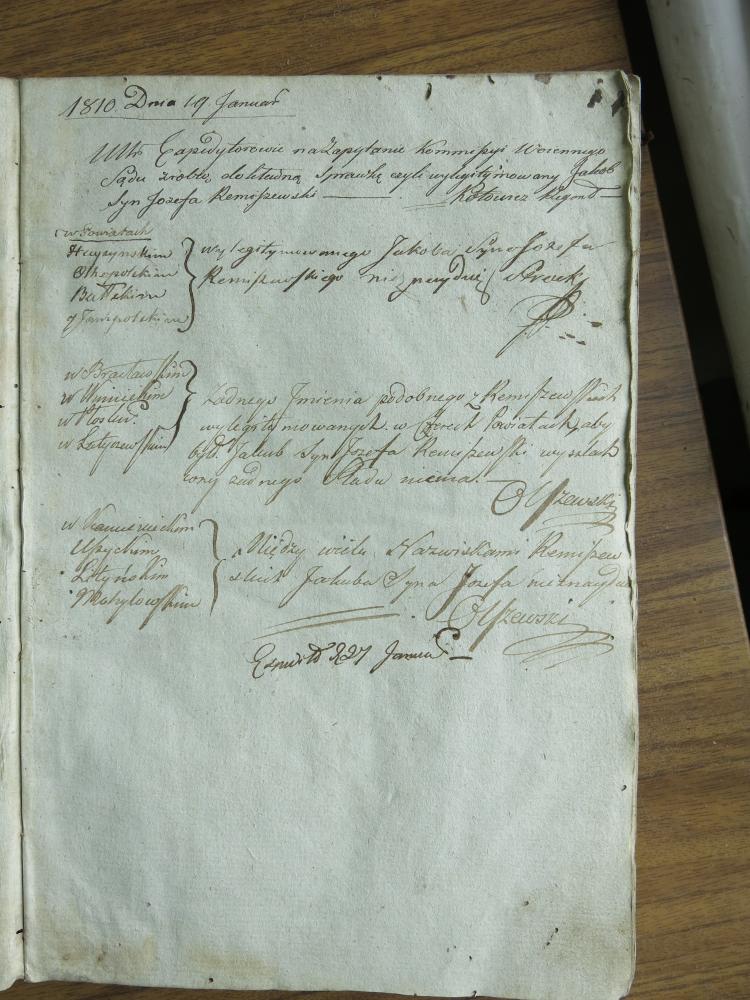 1810. Dnia 19 Januar
Expedytorowie na Zapytanie Kommissyi Woienney
Sądu zrobią dokładną Sprawkę czyli wylegitymowany Jakób
Syn Jozefa Remiszewski
w Powiatach
Haysynskim
Olhopolskim
Baltskim
y Jampolskim
wylegitymowanego Jakoba Syna Jozefa
Remiszewskiego nieznayduię
w Bracławskim
w Winnickim
w Płoskir.
w Latyczewskim
żadnego Imienia podobnego z Remiszewskich
wylegitymowanych w Czterech Powiatach, aby
był Jakub Syn Jozefa Remiszewski wyszlach
cony żadnego Sladu niema.
Olszewski
w Kamienieckim
Uszyckim
Letyńskim
Mohylowskim
Między wielu Nazwiskami Remiszew
skich Jakuba Syna Jozefa nieznayduię
Olszewski
27 Januar